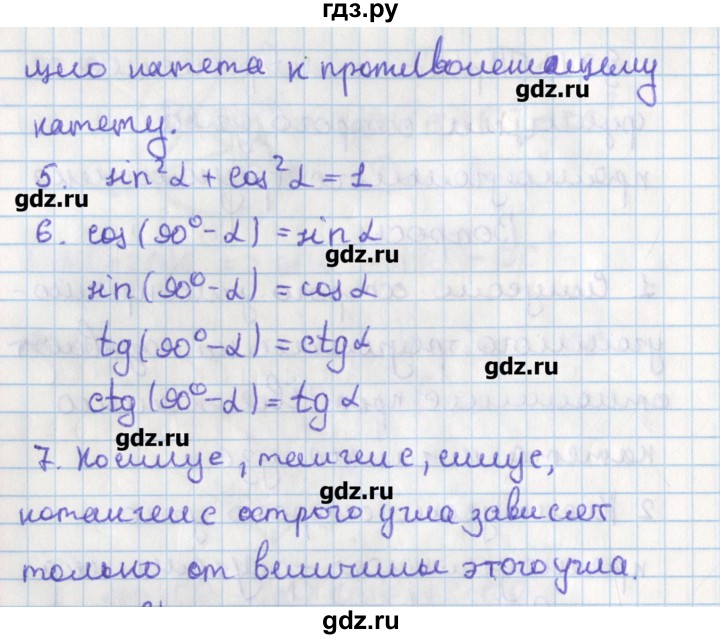 гдз.ру
щего катета к противолежащему
gdz.ru
катету.
5. sin²α + cos²α = 1
gdz.ru
6. cos(90° - α) = sin α
gdz.ru
sin(90° - α) = cos α
tg(90° - α) = ctg α
gdz.ru
ctg(90° - α) = tg α
gdz.ru
7. Косинус, тангенс, синус,
gdz.ru
котангенс острого угла зависят
только от величины этого угла.
gdz.ru